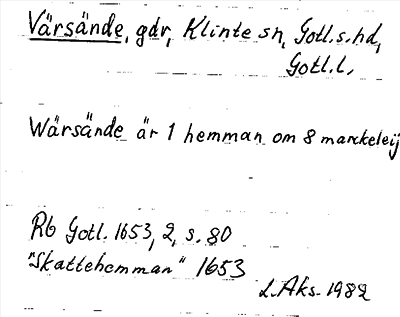 Värsände, gdr, Klinte sn, Gotl.s.hd,
Gotl.l,
Wärsände är 1 hemman om 8 marckeleij
Rb Gotl. 1653, 2, s. 80
"Skattehemman" 1653
L.Aks. 1982